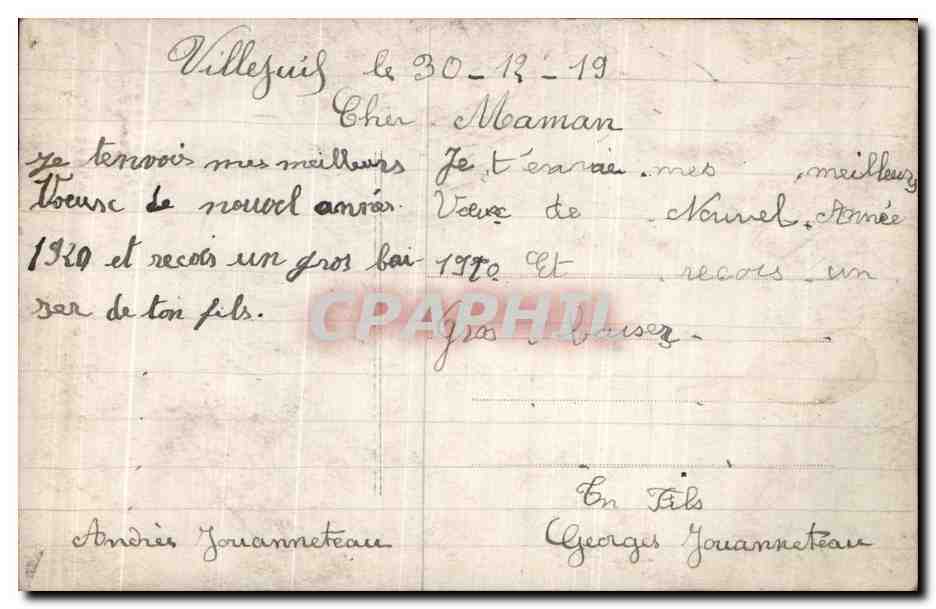 Villejuif le 30-12-19
Cher Maman
Je tenvois mes meilleurs
Voeusc de nouvel annés.
1920 et recois un gros bai-
ser de ton fils.
Andrès Jouanneteau
Je t'envoie mes meilleurs
Vœux de Nouvel Année
1920 Et recois un
Gros baiser.
Tn Fils
Georges Jouanneteau
CPAPHIL